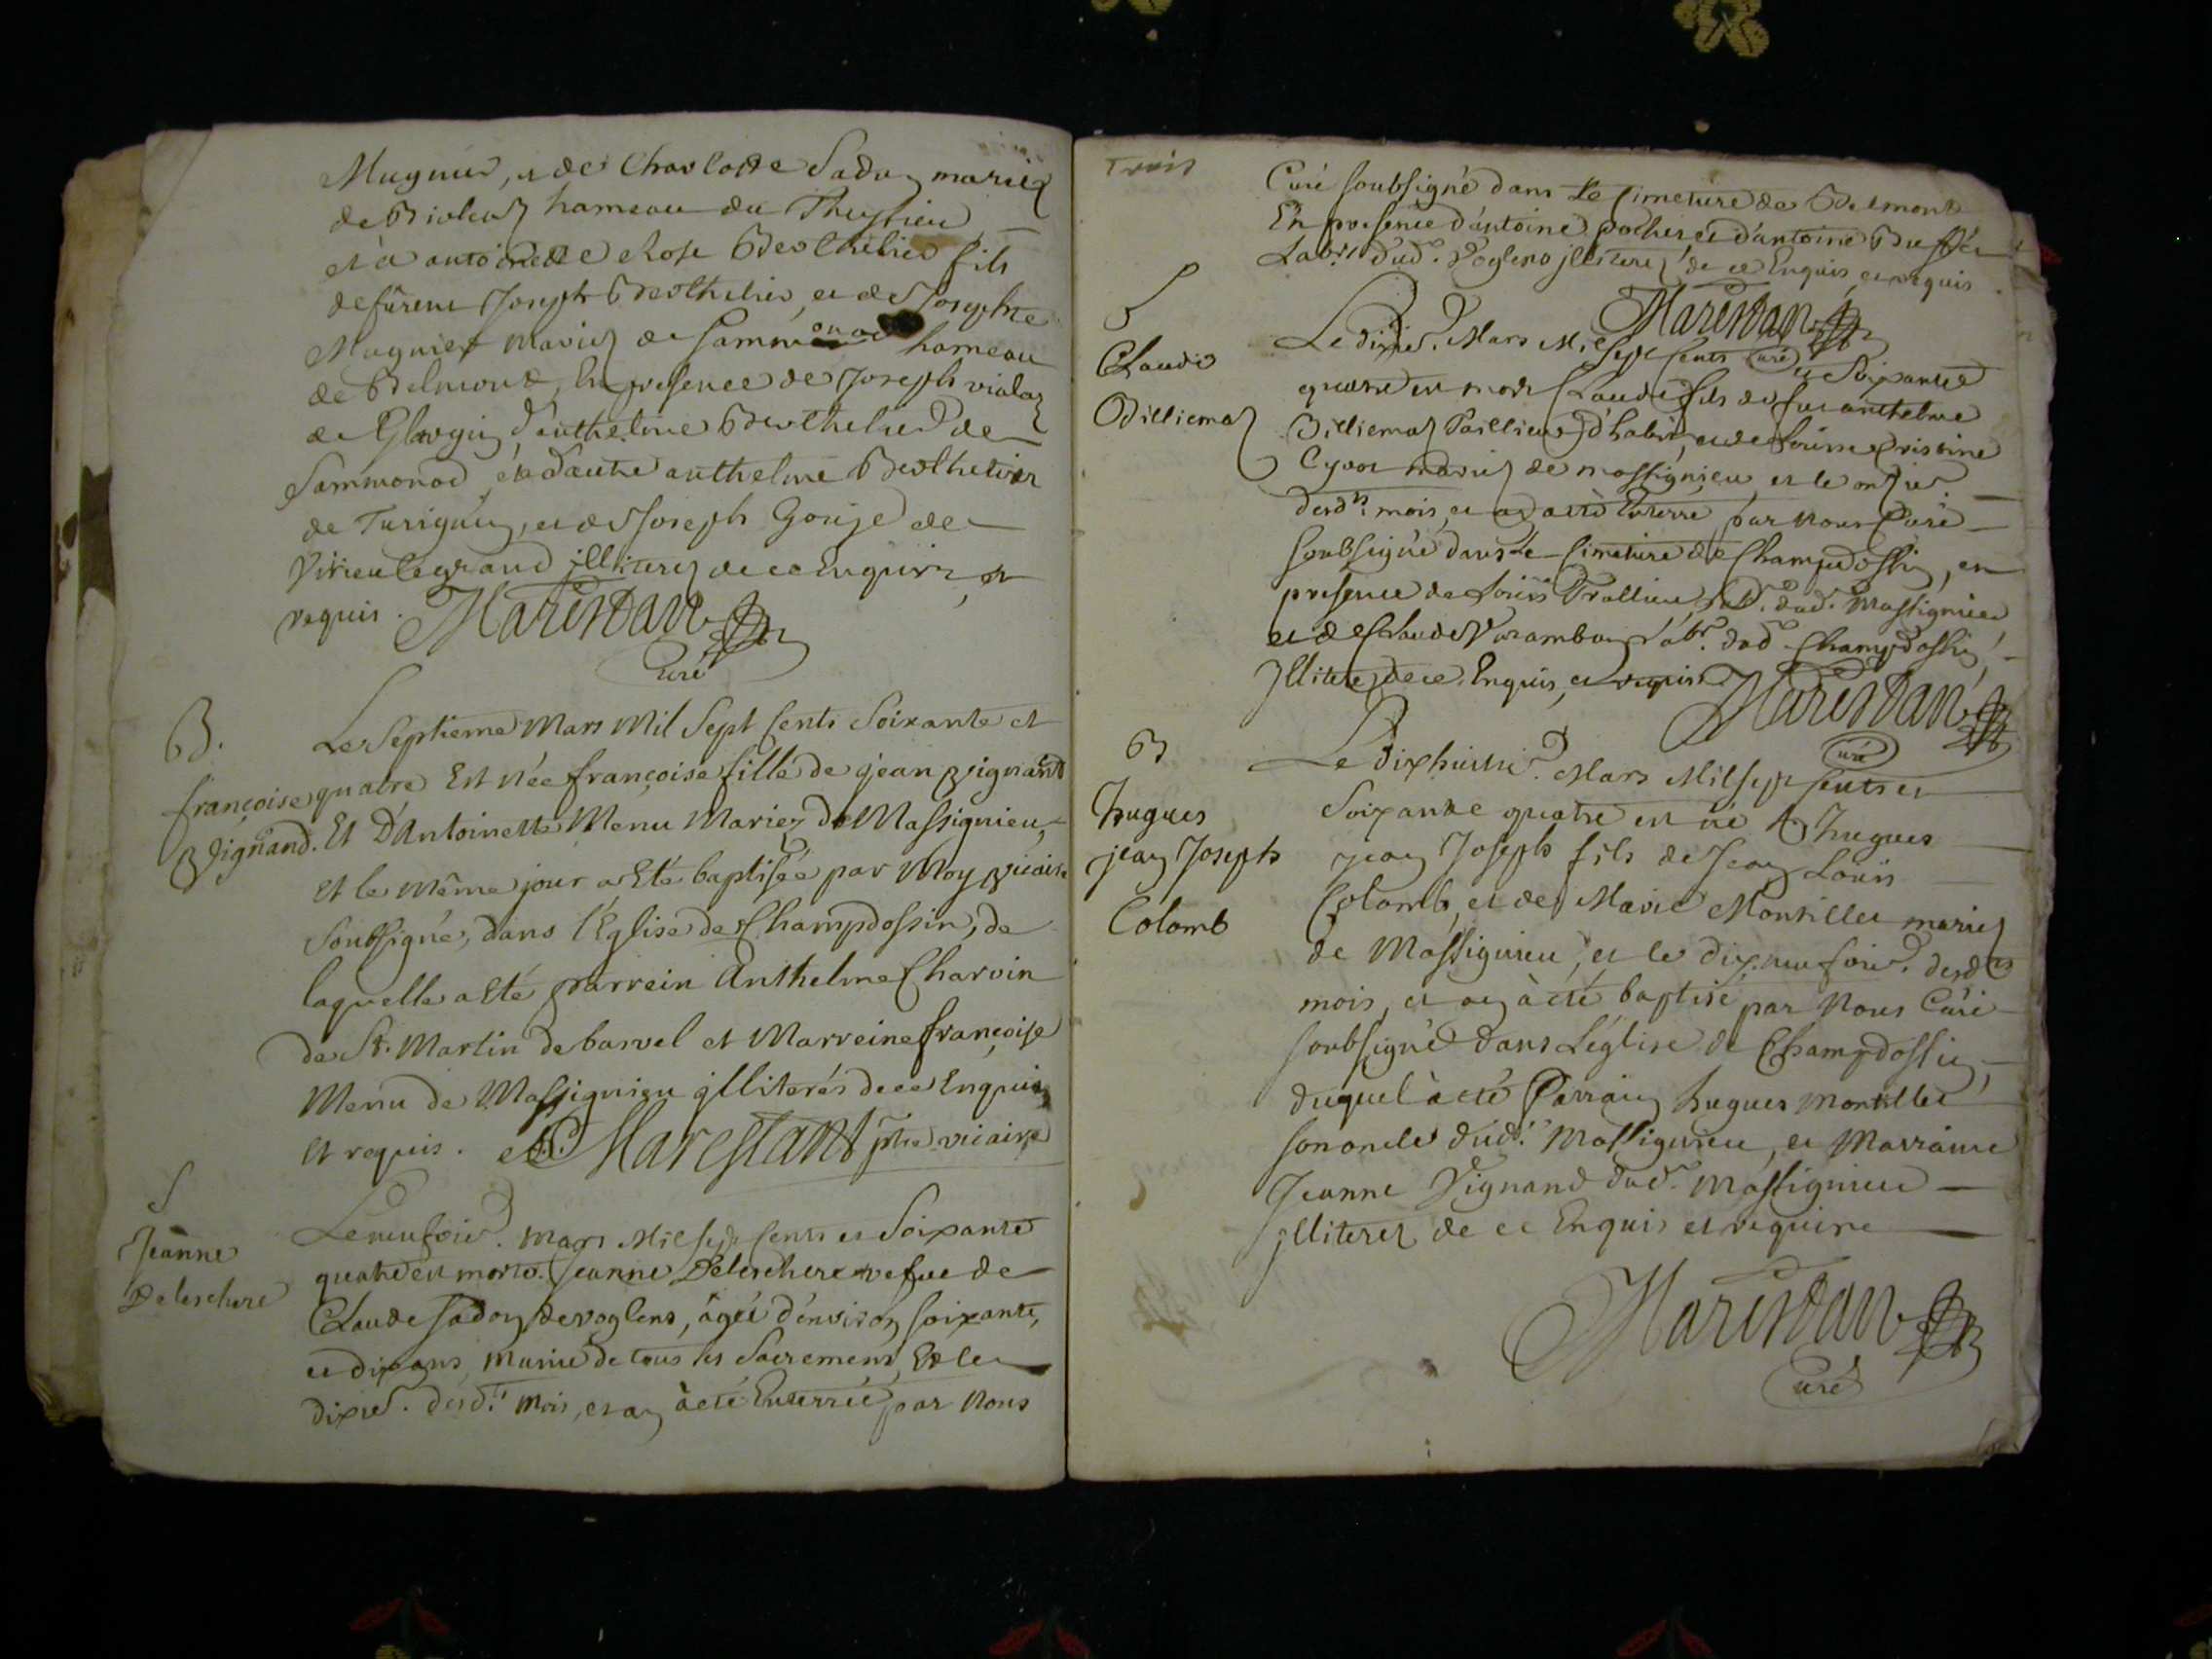 Mugnier, et de Charlotte Sadon mariez
de hameau de Thezieu
et à antoinette Rose Berthelier fils
de fûreur Joseph Berthelier, et de Josephte
Mugnier mariez de Sammonod hameau
de Belmont, En presence de Joseph vialaz
de d'anthelme Berthelier de
Sammonod, et d'autre anthelme Berthelier
de et de Joseph Gonje de
Virieulegrand jlliterez de ce Enquis, et
requis. Marestan
Curé
B.
françoise
Vignand.
Le Septieme Mars Mil Sept Cents Soixante et
quatre Est née françoise fille de jean Vignand
Et D'Antoinette Menu Mariez de Massignieu,
et le Même jour a Eté baptisée par Moy Vicaire
Soubsigné, dans l'Eglise de Champdossin, de
laquelle a Eté parrein Anthelme Charvin
de St. Martin de barvel et Marreine françoise
Menu de Massignieu jlliterés de ce Enquis
et requis. Marestant ptre vicaire
S
Jeanne
Deleschere
Le neufvie. Mars Mil Sept Cents et Soixante
quatre est morte Jeanne Deleschere vefue de
Claude Sadon de voglens, âgée d'environ soixante,
et dix ans, munie de tous les Sacremens, Et le
dixie. desdt. mois, et an à eté Enterrée par Nous
Trois
Curé soubsigné dans Le Cimetiere de Belmont
En presence d'antoine pochet et d'antoine Buffet
Labrs. dud. Voglens jlliterez de ce Enquis, et requis.
Marestan
Curé
S
Claude
Billiemaz
Le dixie. Mars Mil Sept Cents et Soixante
quatre est mort Claude fils de feu anthelme
Billiemaz Taillieur d'habit, et de Louise Cristine
mariez de massignieu et le onzie.
desdts. mois, et an a eté Enterré par Nous Curé
soubsigné dans le Cimetiere de Champdossin, en
presence de Louis Trollieu Lab. dud. Massignieu
et de Claude Varambon Labr. dud. Champdossin,
Jlliterez de ce Enquis, et requis Marestan
Curé
B
hugues
jean Joseph
Colomb
Le Dixhuitie. Mars Mil sept Cents et
Soixante quatre est né hugues
jean Joseph fils de Jean Louis
Colomb, et de Marie Montillet mariez
de Massignieu, et le dixneufvie. desdts
mois, et an à eté baptisé par Nous Curé
soubsigné dans L'église de Champdossin,
duquel à eté Parrain hugues Montillet
son oncle dud. Massignieu, et Marraine
Jeanne Vignand dud. Massignieu
jlliterez de ce Enquis et require
Marestan
Curé